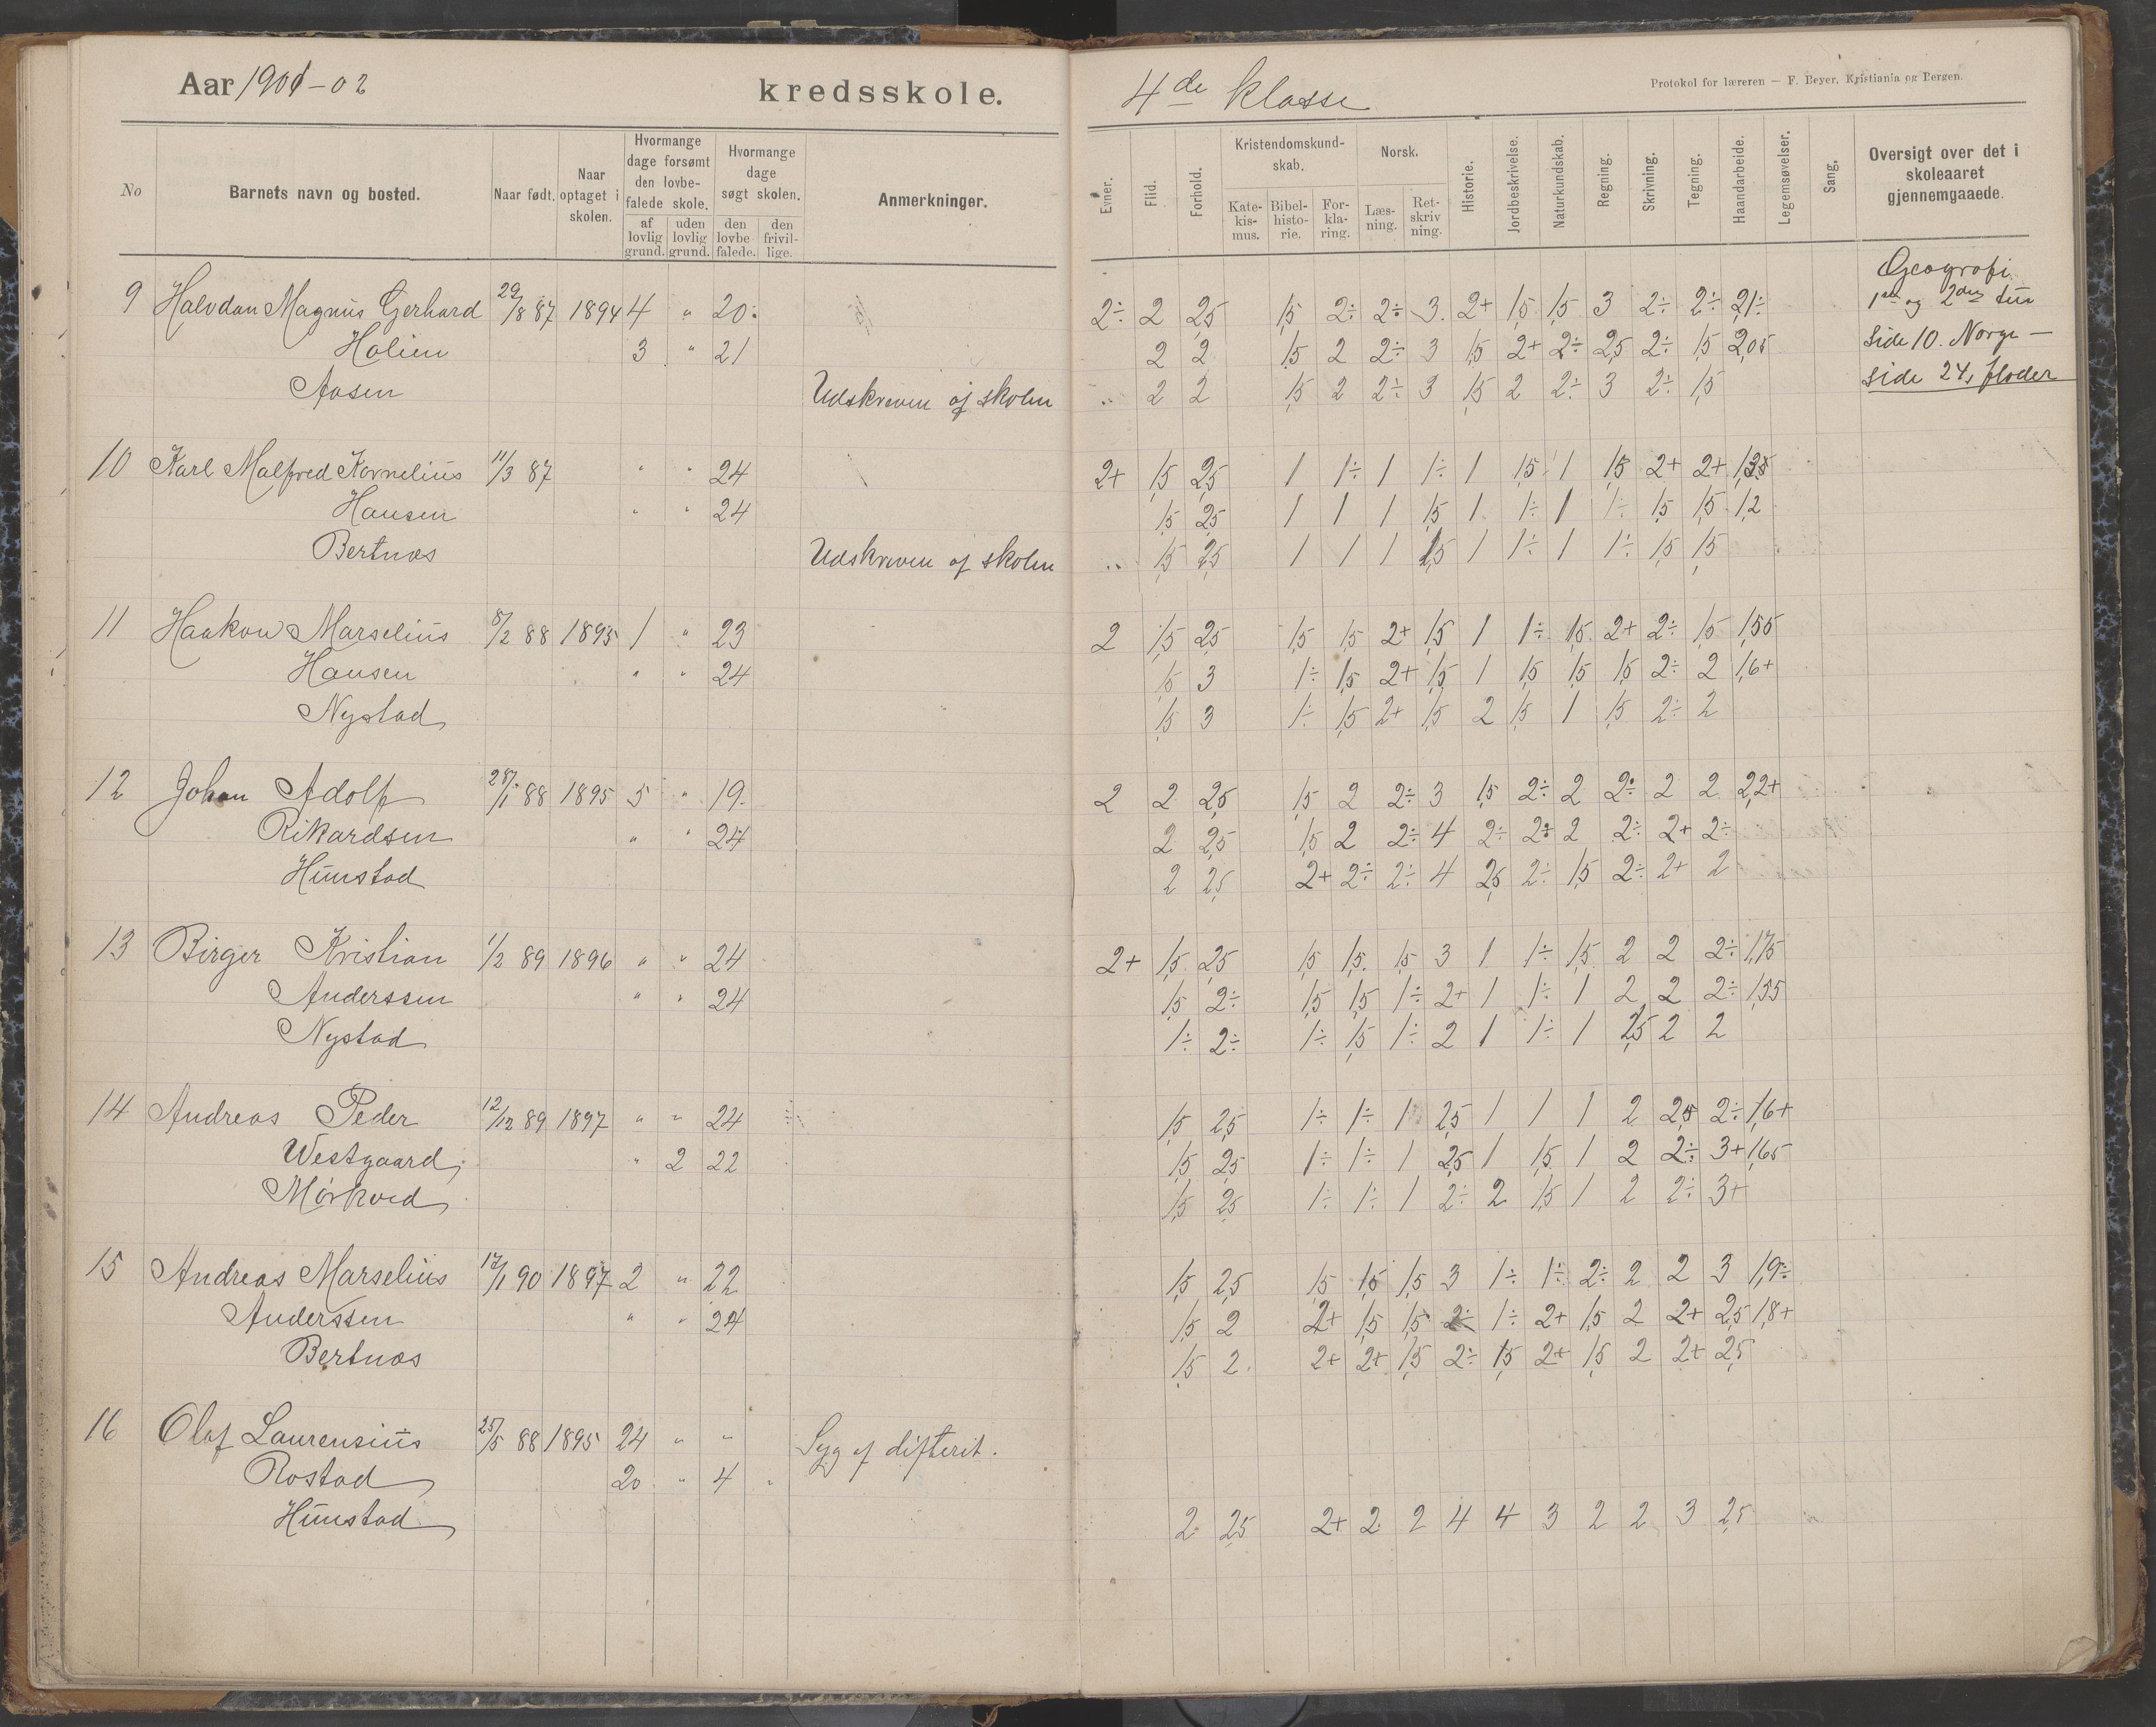 Aar 1901-02 kredsskole. 4de klasse Protokol for læreren — F. Beyer, Kristiania og Bergen.
No Barnets navn og bosted. Naar født. Naar optaget i skolen. Hvormange dage forsømt den lovbefalede skole. af lovlig grund. uden lovlig grund. Hvormange dage søgt skolen. den lovbefalede. den frivillige. Anmerkninger. Evner. Flid. Forhold. Kristendomskundskab. Katekismus. Bibelhistorie. Forklaring. Norsk. Læsning. Retskrivning. Historie. Jordbeskrivelse. Naturkundskab. Regning. Skrivning. Tegning. Haandarbeide. Legemsøvelser. Sang. Oversigt over det i skoleaaret gjennemgaaede.
9 Halvdan Magnus Gerhard 29/8 87 1894 4 " 20. 2÷ 2 2,5 1,5 2÷ 2÷ 3. 2+ 1,5 1,5 3 2÷ 2÷ 2,1÷ Geografi 1ste og 2den
Holien 3 " 21 2 2 1,5 2 2÷ 3 1,5 2+ 2÷ 2,5 2÷ 1,5 2,05 side 10. Norge —
Aasen Udskreven af skolen " 2 2 1,5 2 2÷ 3 1,5 2 2÷ 3 2÷ 1,5 side 24, floder
10 Karl Malfred Kornelius 11/3 87 " " 24 2+ 1,5 2,5 1 1÷ 1 1÷ 1 1,5 1 1,5 2+ 2+ 1,35
Hansen " " 24 1,5 2,5 1 1 1 1,5 1 1÷ 1 1÷ 1,5 1,5 1,2
Bertnæs Udskreven af skolen " 1,5 2,5 1 1 1 1,5 1 1÷ 1 1÷ 1,5 1,5
11 Haakon Marselius 8/2 88 1895 1 " 23 2 1,5 2,5 1,5 1,5 2+ 1,5 1 1÷ 1,5 2+ 2÷ 1,5 1,55
Hansen " " 24 1,5 3 1÷ 1,5 2+ 1,5 1 1,5 1,5 1,5 2÷ 2 1,6+
Nystad 1,5 3 1÷ 1,5 2+ 1,5 2 1,5 1 1,5 2÷ 2
12 Johan Adolf 28/1 88 1895 5 " 19. 2 2 2,5 1,5 2 2÷ 3 1,5 2÷ 2 2÷ 2 2 2,2+
Rikardsen " " 24 2 2,5 1,5 2 2÷ 4 2÷ 2÷ 2 2÷ 2+ 2÷
Hunstad 2 2,5 2+ 2÷ 2÷ 4 2,5 2÷ 1,5 2÷ 2+ 2
13 Birger Kristian 1/2 89 1896 " " 24 2+ 1,5 2,5 1,5 1,5 1,5 3 1 1÷ 1,5 2 2 2÷ 1,75
Anderssen " " 24 1,5 2÷ 1,5 1,5 1÷ 2+ 1 1÷ 1 2 2 2÷ 1,55
Nystad 1÷ 2÷ 1÷ 1,5 1÷ 2 1 1÷ 1 2,5 2 2
14 Andreas Peder 12/12 89 1897 " " 24 1,5 2,5 1÷ 1÷ 1 2,5 1 1 1 2 2,5 2÷ 1,6+
Westgaard, " 2 22 1,5 2,5 1÷ 1÷ 1 2,5 1 1,5 1 2 2÷ 3+ 1,65
Mørkved 1,5 2,5 1÷ 1÷ 1 2÷ 2 1,5 1 2 2÷ 3+
15 Andreas Marselius 17/1 90 1897 2 " 22 1,5 2,5 1,5 1,5 1,5 3 1÷ 1÷ 2÷ 2 2 3 1,9÷
Anderssen " " 24 1,5 2 2+ 1,5 1,5 2÷ 1÷ 2+ 1,5 2 2+ 2,5 1,8+
Bertnæs 1,5 2. 2+ 2+ 1,5 2÷ 1,5 2+ 1,5 2 2+ 2,5
16 Olaf Laurensius 25/5 88 1895 24 " " Syg af difterit.
Rostad 20 " 4
Hunstad 2 2,5 2+ 2 2 4 4 3 2 2 3 2,5